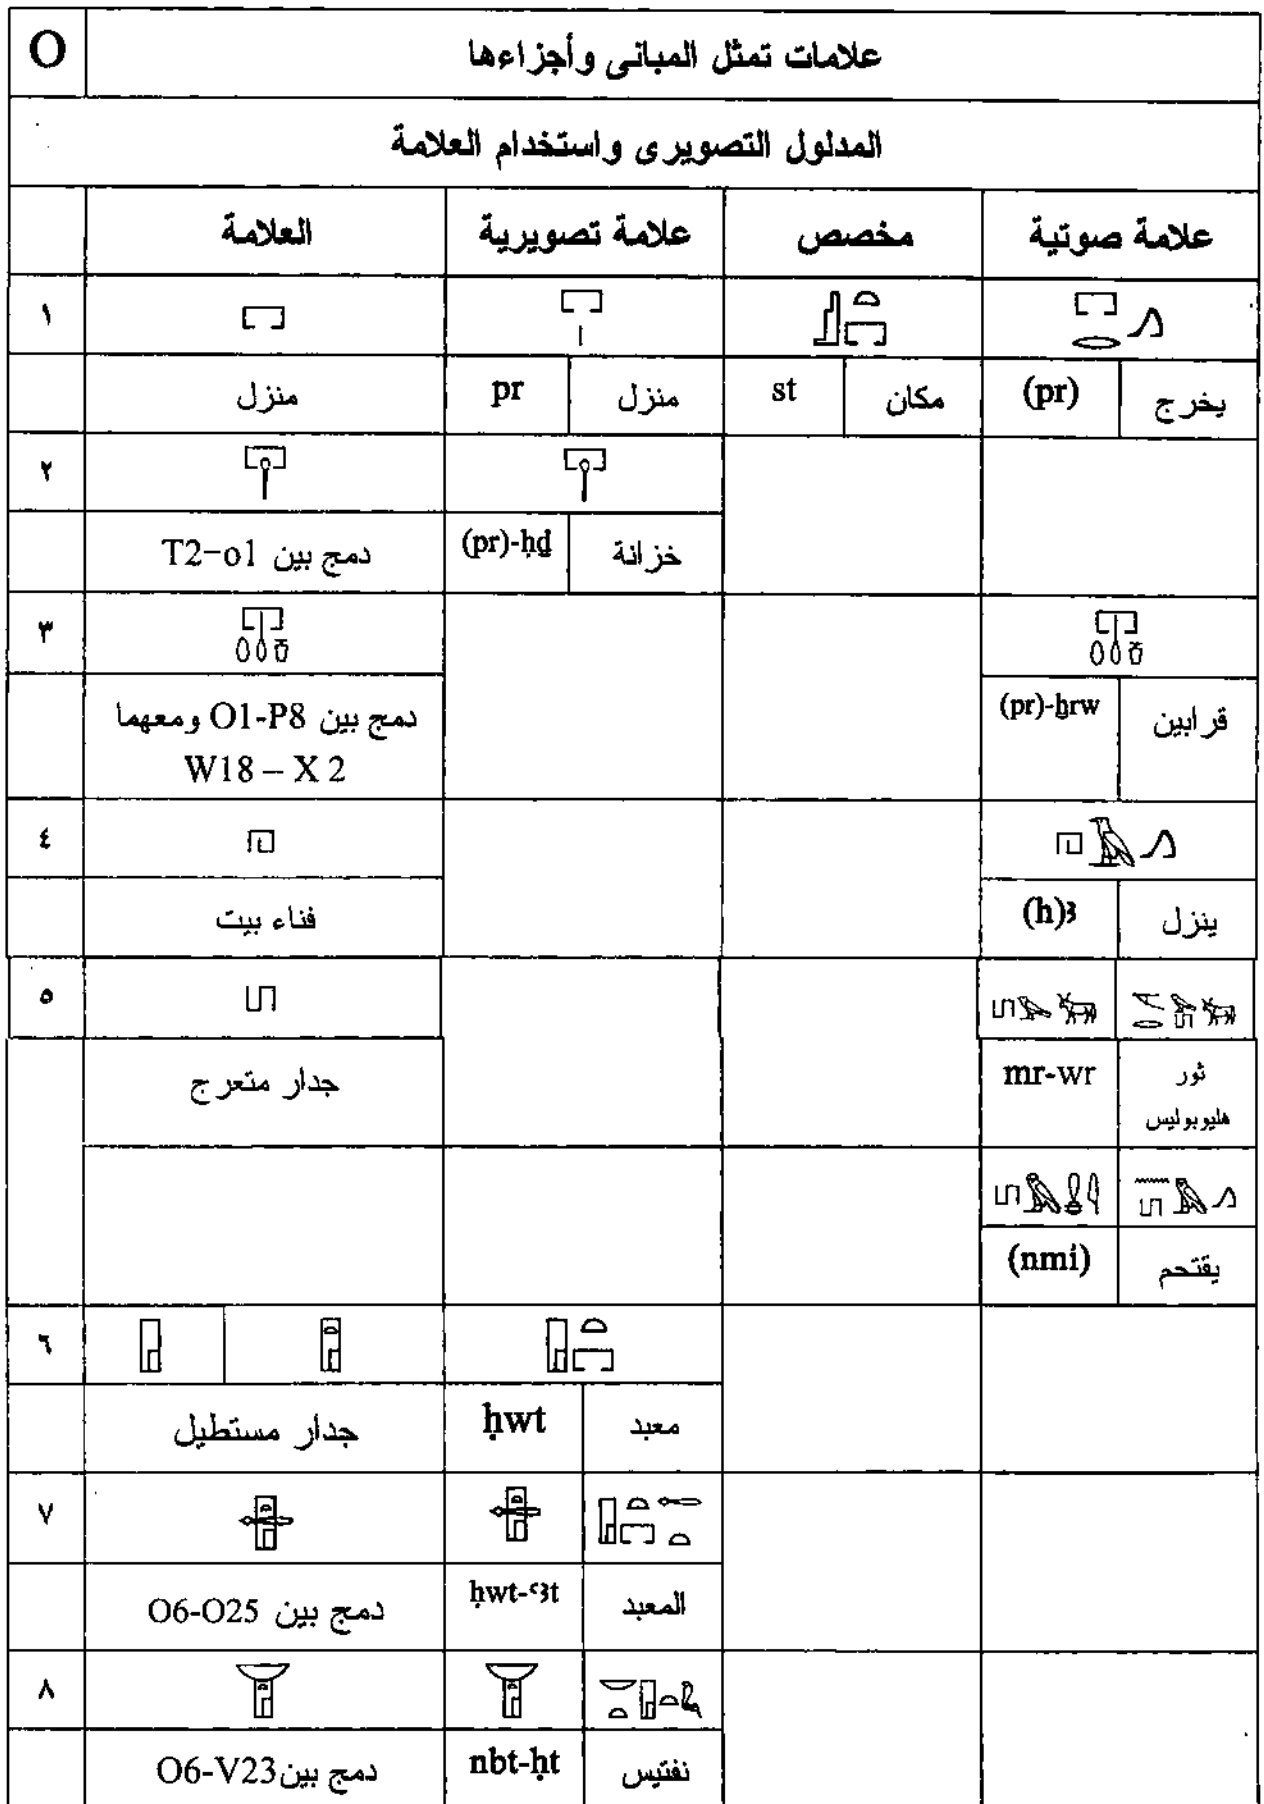 O علامات تمثل المبانى وأجزاءها
المدلول التصويرى واستخدام العلامة
العلامة علامة تصويرية مخصص علامة صوتية
١
منزل pr منزل st مكان (pr) يخرج
٢
دمج بين T2-o1 (pr)-ḥḏ خزانة
٣
دمج بين O1-P8 ومعهما (pr)-ḫrw قرابين
W18 – X 2
٤
فناء بيت (h)ꜣ ينزل
٥
جدار متعرج mr-wr ثور
هليوبوليس
(nmi) يقتحم
٦
جدار مستطيل ḥwt معبد
٧
دمج بين O6-O25 ḥwt-ꜥꜣt المعبد
٨
دمج بين O6-V23 nbt-ḥt نفتيس